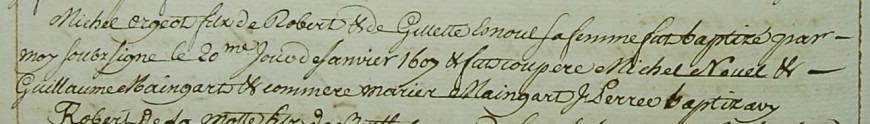 Michel orgeot filx de Robert & de Gillette Esnoul sa femme fut baptizé par —
moy soubz signé le 20me Jour de Janvier 1607 & fut coupere Michel Nouel & —
Guillaume Maingart & commere marier Maingart J Perree baptizavy
Robert De la Motte filx de